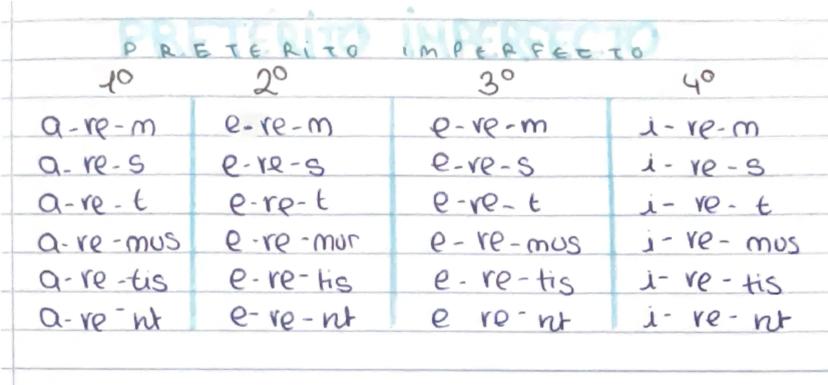 PRETÉRITO IMPERFECTO
1º 2º 3º 4º
a-re-m e-re-m e-re-m i-re-m
a-re-s e-re-s e-re-s i-re-s
a-re-t e-re-t e-re-t i-re-t
a-re-mus e-re-mur e-re-mus i-re-mos
a-re-tis e-re-tis e-re-tis i-re-tis
a-re-nt e-re-nt e re-nt i-re-nt